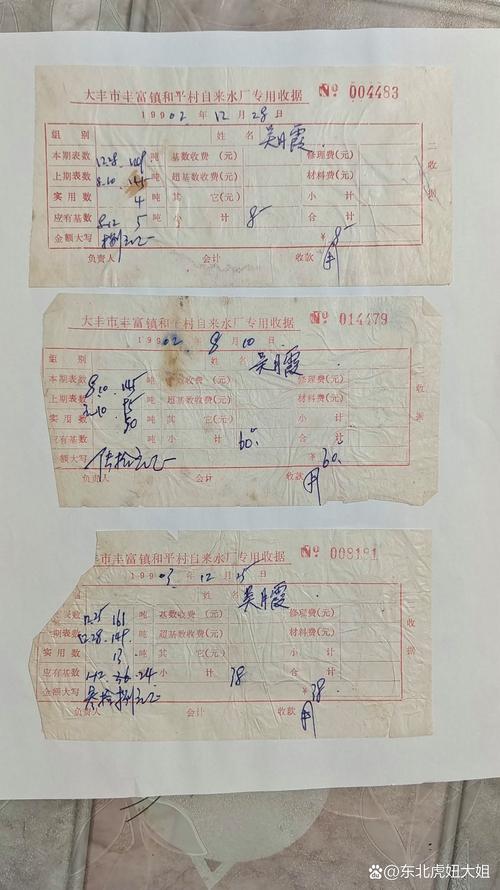 大丰市丰富镇和平村自来水厂专用收据 № 004483
19902 年 12 月 28 日
组 别 姓 名 吴月霞
本期表数 12.28 149 吨 基数收费(元) 修理费(元)
上期表数 8.10 145 吨 超基数收费(元) 材料费(元)
实用数 4 吨 其 它(元) 小 计
应有基数 8-12 5 吨 小 计 8 合 计
金额大写 捌元 ¥ 8
负责人 会计 收款
二收据
大丰市丰富镇和平村自来水厂专用收据 № 014479
19902 年 8 月 10 日
组 别 吴月霞
本期表数 8.10 145 吨 基数收费(元) 修理费(元)
上期表数 吨 超基数收费(元) 材料费(元)
实用数 50 吨 其 它(元) 小 计
应有基数 吨 小 计 60. 合 计
额大写 陆拾元 ¥ 60.
负责人 会计 收款
收据
丰市丰富镇和平村自来水厂专用收据 № 008181
19903 年 12 月 25 日
吴月霞
12.25 161 吨 基数收费(元) 修理费(元)
期表数 12.28 149 吨 超基数收费(元) 材料费(元)
实用数 13 吨 其 它(元) 小 计
应有基数 24 吨 小 计 38 合 计
金额大写 叁拾捌元 ¥ 38.
负责人 会计 收款
收据
@东北虎妞大姐